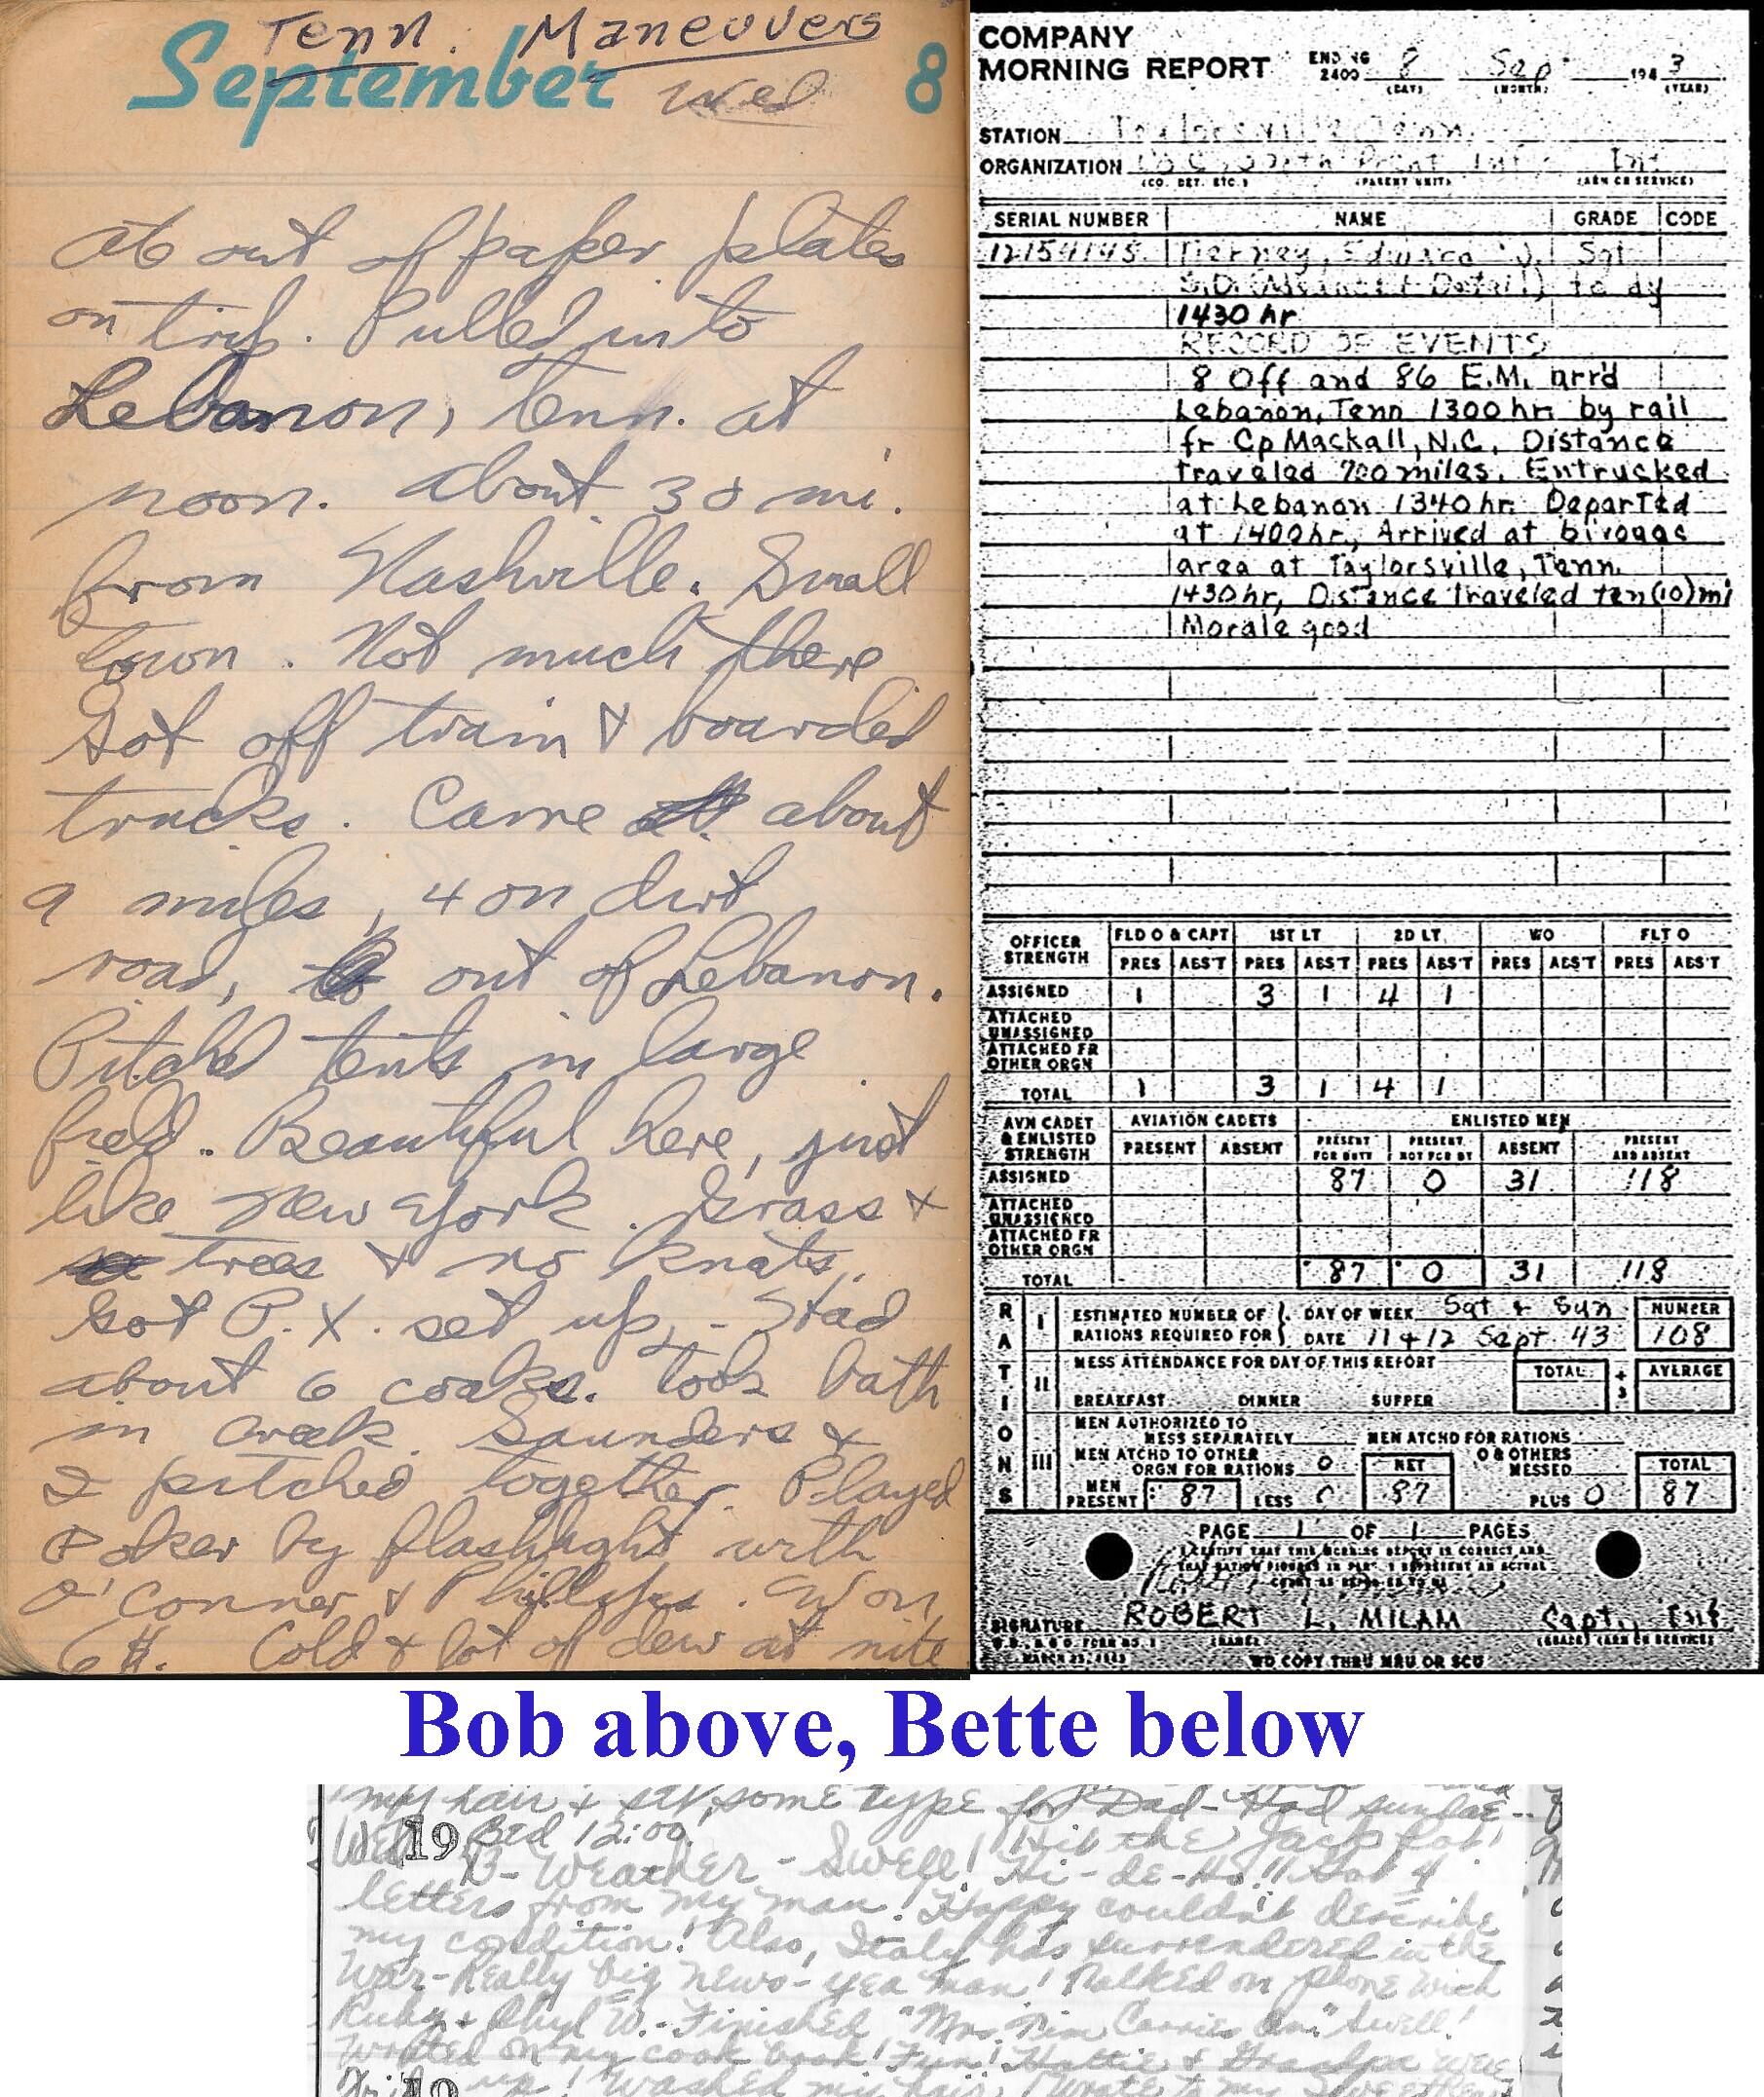 Tenn. Maneuvers
September Wed 8
Ate out of paper plates
on trip. Pulled into
Lebanon, Tenn. at
noon. About 30 mi.
from Nashville. Small
town. Not much there
Got off train & boarded
trucks. Came about
9 miles, 4 on dirt
road, out of Lebanon.
Pitched tents in large
field. Beautiful here, just
like New York. Grass &
trees & no knats.
Got P.X. set up, - Had
about 6 cokes. Took bath
in creek. Saunders &
I pitched together. Played
Poker by flashlight with
O'Conner & Phillips. Won
6$. Cold & lot of dew at nite
COMPANY
MORNING REPORT ENDING 2400 8 Sep 1943
(DAY) (MONTH) (YEAR)
STATION Taylorsville, Tenn.
ORGANIZATION Co C Prcht Inf Inf
(CO. DET. ETC.) (PARENT UNIT) (ARM OR SERVICE)
SERIAL NUMBER NAME GRADE CODE
12154145 Tierney, Edward J. Sgt
S.D. (Advance Detail) to dy
1430 hr
RECORD OF EVENTS
8 Off and 86 E.M. arr'd
Lebanon, Tenn 1300 hr by rail
fr Cp Mackall, N.C. Distance
traveled 700 miles. Entrucked
at Lebanon 1340 hr. Departed
at 1400 hr, Arrived at bivouac
area at Taylorsville, Tenn.
1430 hr, Distance traveled ten (10) mi
Morale good
OFFICER STRENGTH FLD O & CAPT 1ST LT 2D LT WO FLT O
PRES ABS'T PRES ABS'T PRES ABS'T PRES ABS'T PRES ABS'T
ASSIGNED 1 3 1 4 1
ATTACHED UNASSIGNED
ATTACHED FR OTHER ORGN
TOTAL 1 3 1 4 1
AVN CADET & ENLISTED STRENGTH AVIATION CADETS ENLISTED MEN
PRESENT ABSENT PRESENT FOR DUTY PRESENT NOT FOR DY ABSENT PRESENT AND ABSENT
ASSIGNED 87 0 31 118
ATTACHED UNASSIGNED
ATTACHED FR OTHER ORGN
TOTAL 87 0 31 118
RATIONS
I ESTIMATED NUMBER OF RATIONS REQUIRED FOR DAY OF WEEK Sat & Sun NUMBER
DATE 11 + 12 Sept 43 108
II MESS ATTENDANCE FOR DAY OF THIS REPORT TOTAL ÷ 3 AVERAGE
BREAKFAST DINNER SUPPER
III MEN AUTHORIZED TO MESS SEPARATELY MEN ATCHD FOR RATIONS
MEN ATCHD TO OTHER ORGN FOR RATIONS 0 NET O & OTHERS MESSED TOTAL
MEN PRESENT 87 LESS 0 87 PLUS 0 87
PAGE 1 OF 1 PAGES
I CERTIFY THAT THIS MORNING REPORT IS CORRECT AND
SIGNATURE ROBERT L. MILAM Capt., Inf
(NAME) (GRADE) (ARM OR SERVICE)
MARCH 23, 1943 WD COPY THRU MRU OR SCU
Bob above, Bette below
my hair & some type for Dad - Had sundae -
Bed 12:00.
Wed 19 B - Weather - Swell! Hit the Jack Pot!
Hi-de-Ho!! Got 4
letters from my man! Happy couldn't describe
my condition! Also, Italy has surrendered in the
War - Really big news - yea man! Talked on phone with
Ruby & Phyl W. - Finished "Mrs. Tim Carries On" Swell!
Worked on my cook book! Fun! Hattie & Grandpa were
up! Washed my hair, Wrote to my
19